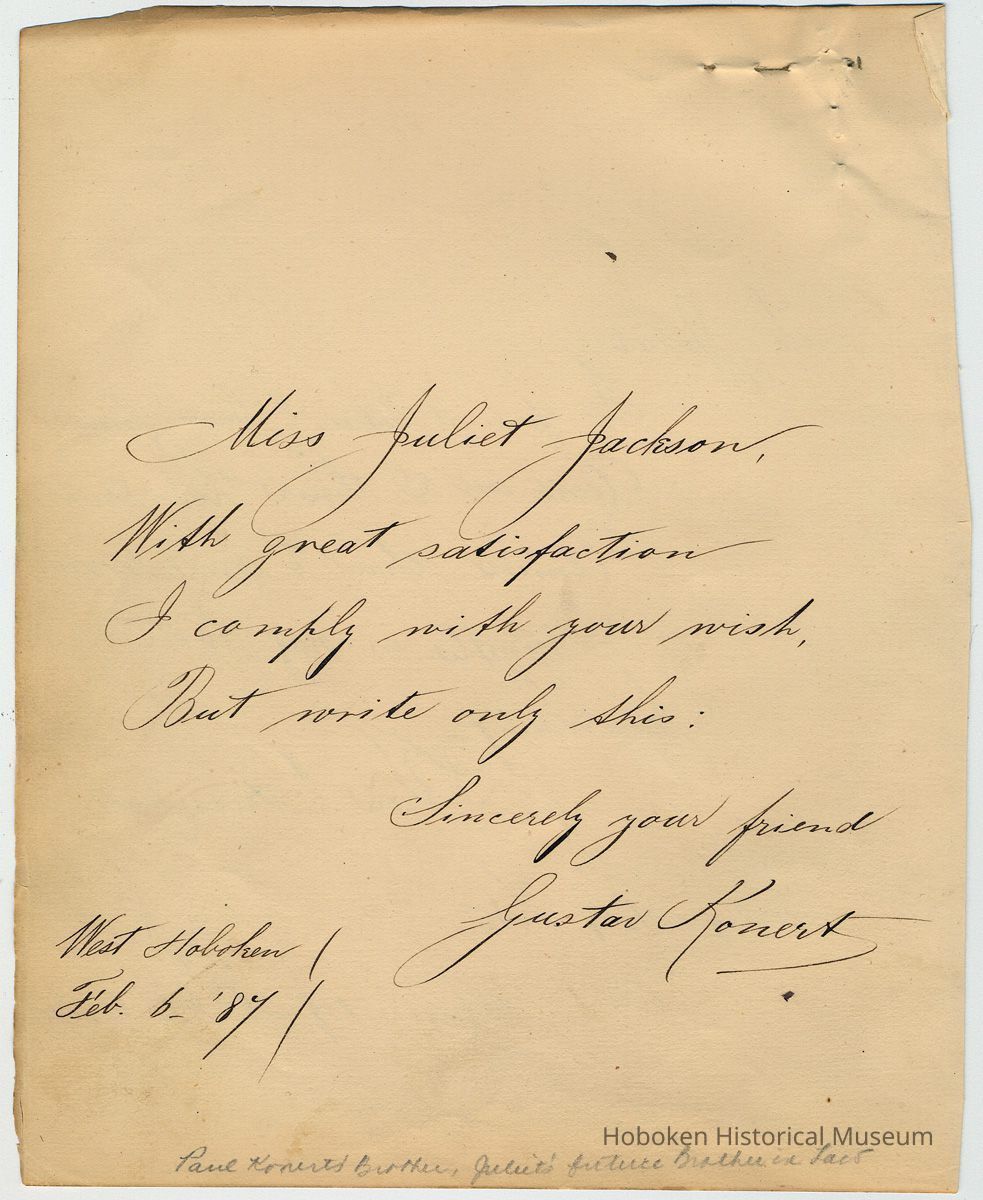 Miss Juliet Jackson,
With great satisfaction
I comply with your wish,
But write only this:
Sincerely your friend
Gustav Konert
West Hoboken
Feb. 6 - '87
Hoboken Historical Museum
Paul Konert's Brother, Juliet's future Brother in Law